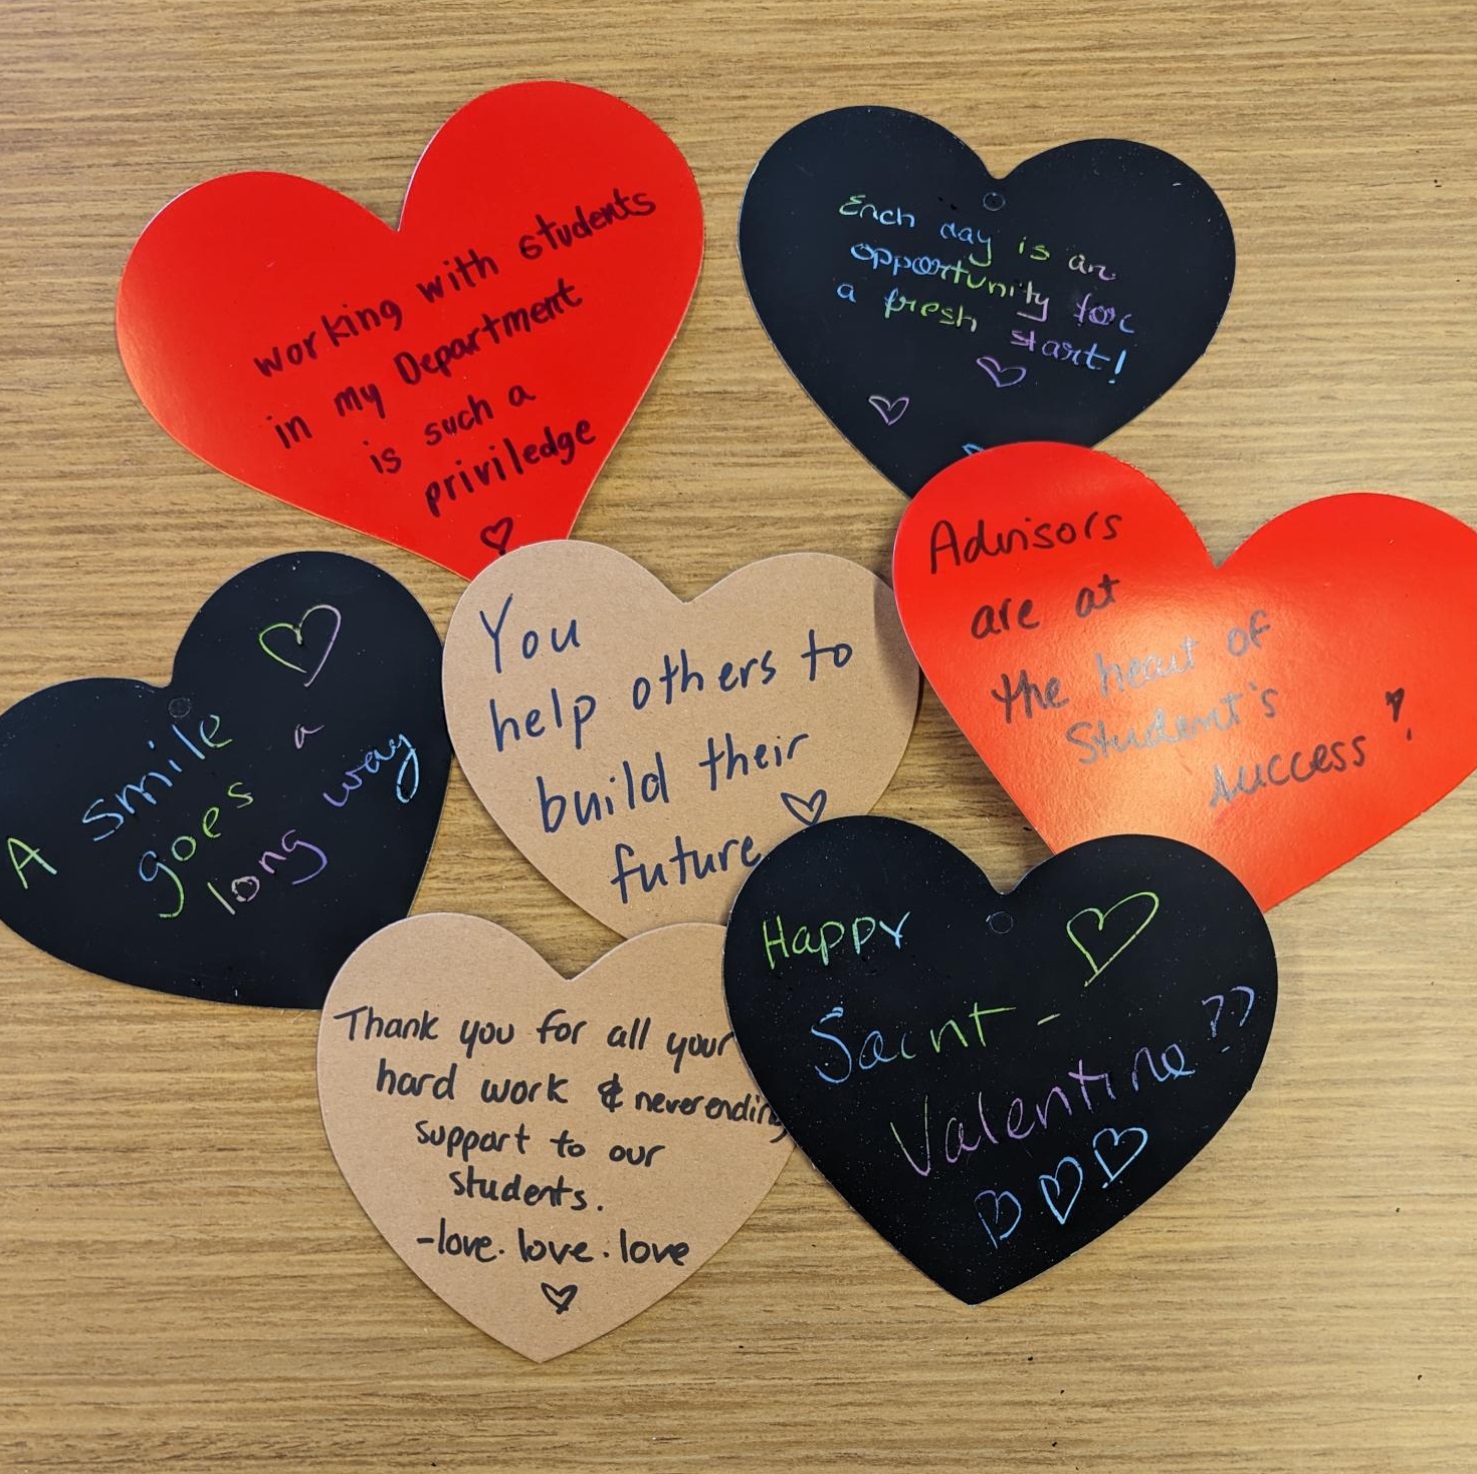 working with students
in my Department
is such a
priviledge
Each day is an
opportunity for
a fresh start!
Advisors
are at
the heart of
Student's
success!
A smile
goes a
long way
You
help others to
build their
future
Happy
Saint-
Valentine!!
Thank you for all your
hard work & neverending
support to our
students.
-love. love. love